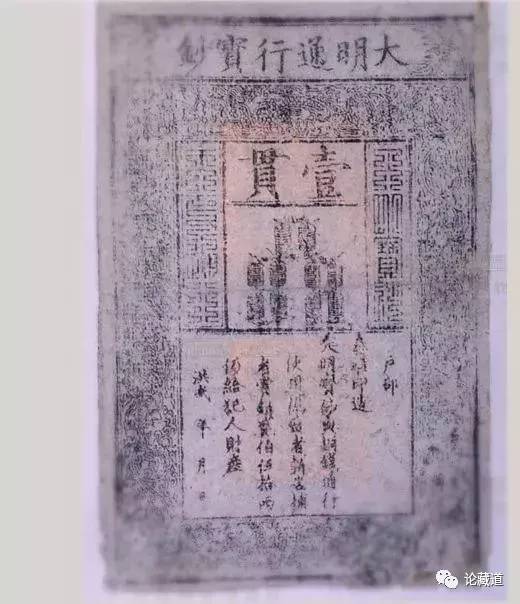 大明通行寶鈔
壹貫
户部
奏准印造
大明寶鈔與銅錢通行
使用偽造者斬告捕
者賞銀貳伯伍拾兩
仍給犯人財産
洪武 年 月 日
论藏道